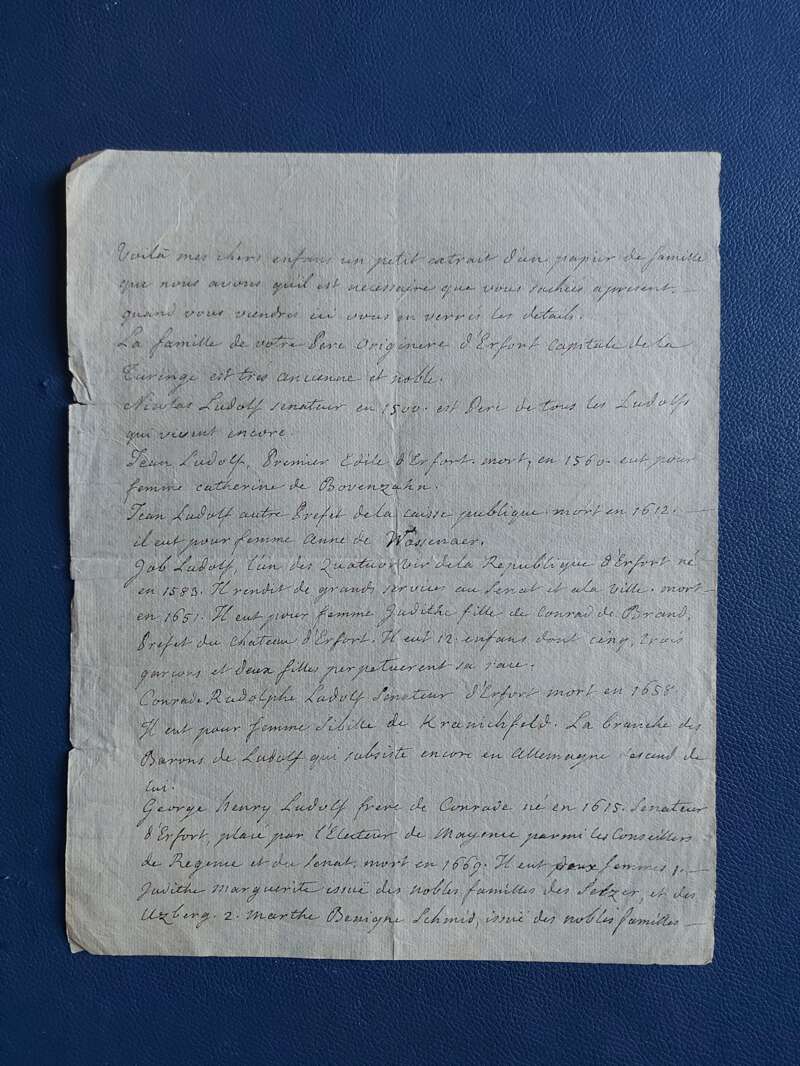 Voilà mes chers enfans un petit extrait d'un papier de famille
que nous avons qu'il est necessaire que vous sachiés apresent,
quand vous viendres ici vous en verrés les details.
La famille de votre Pere Originere d'Erfort Capitale de la
Turinge est tres ancienne et noble.
Nicolas Ludolf senateur en 1500. est Pere de tous les Ludolfs
qui vivent encore.
Jean Ludolf, Premier Edile d'Erfort. mort, en 1560. eut pour
femme Catherine de Bovenzahn.
Jean Ludolf autre Prefet de la caisse publique. mort en 1612.
il eut pour femme Anne de Wassenaer.
Job Ludolf, l'un des Quatuorvir de la Republique d'Erfort né
en 1583. Il rendit de grands services au Senat et a la ville. mort
en 1651. Il eut pour femme Judithe fille de Conrad de Brand,
Prefet du Chateau d'Erfort. Il eut 12. enfans dont cinq, trois
garçons et deux filles perpetuerent sa race.
Conrade Rudolphe Ludolf Senateur d'Erfort mort en 1658.
Il eut pour femme Sibille de Kranichfeld. La branche des
Barons de Ludolf qui subsiste encore en Allemagne descend de
lui.
George Henry Ludolf frere de Conrade né en 1615. Senateur
d'Erfort, placé par l'Electeur de Mayence parmi les Conseillers
de Regence et du Senat. mort en 1669. Il eut deux femmes 1.
Judithe Marguerite issuë des nobles familles des Selzer, et des
Utzberg. 2. Marthe Benigne Schmid, issuë des nobles familles